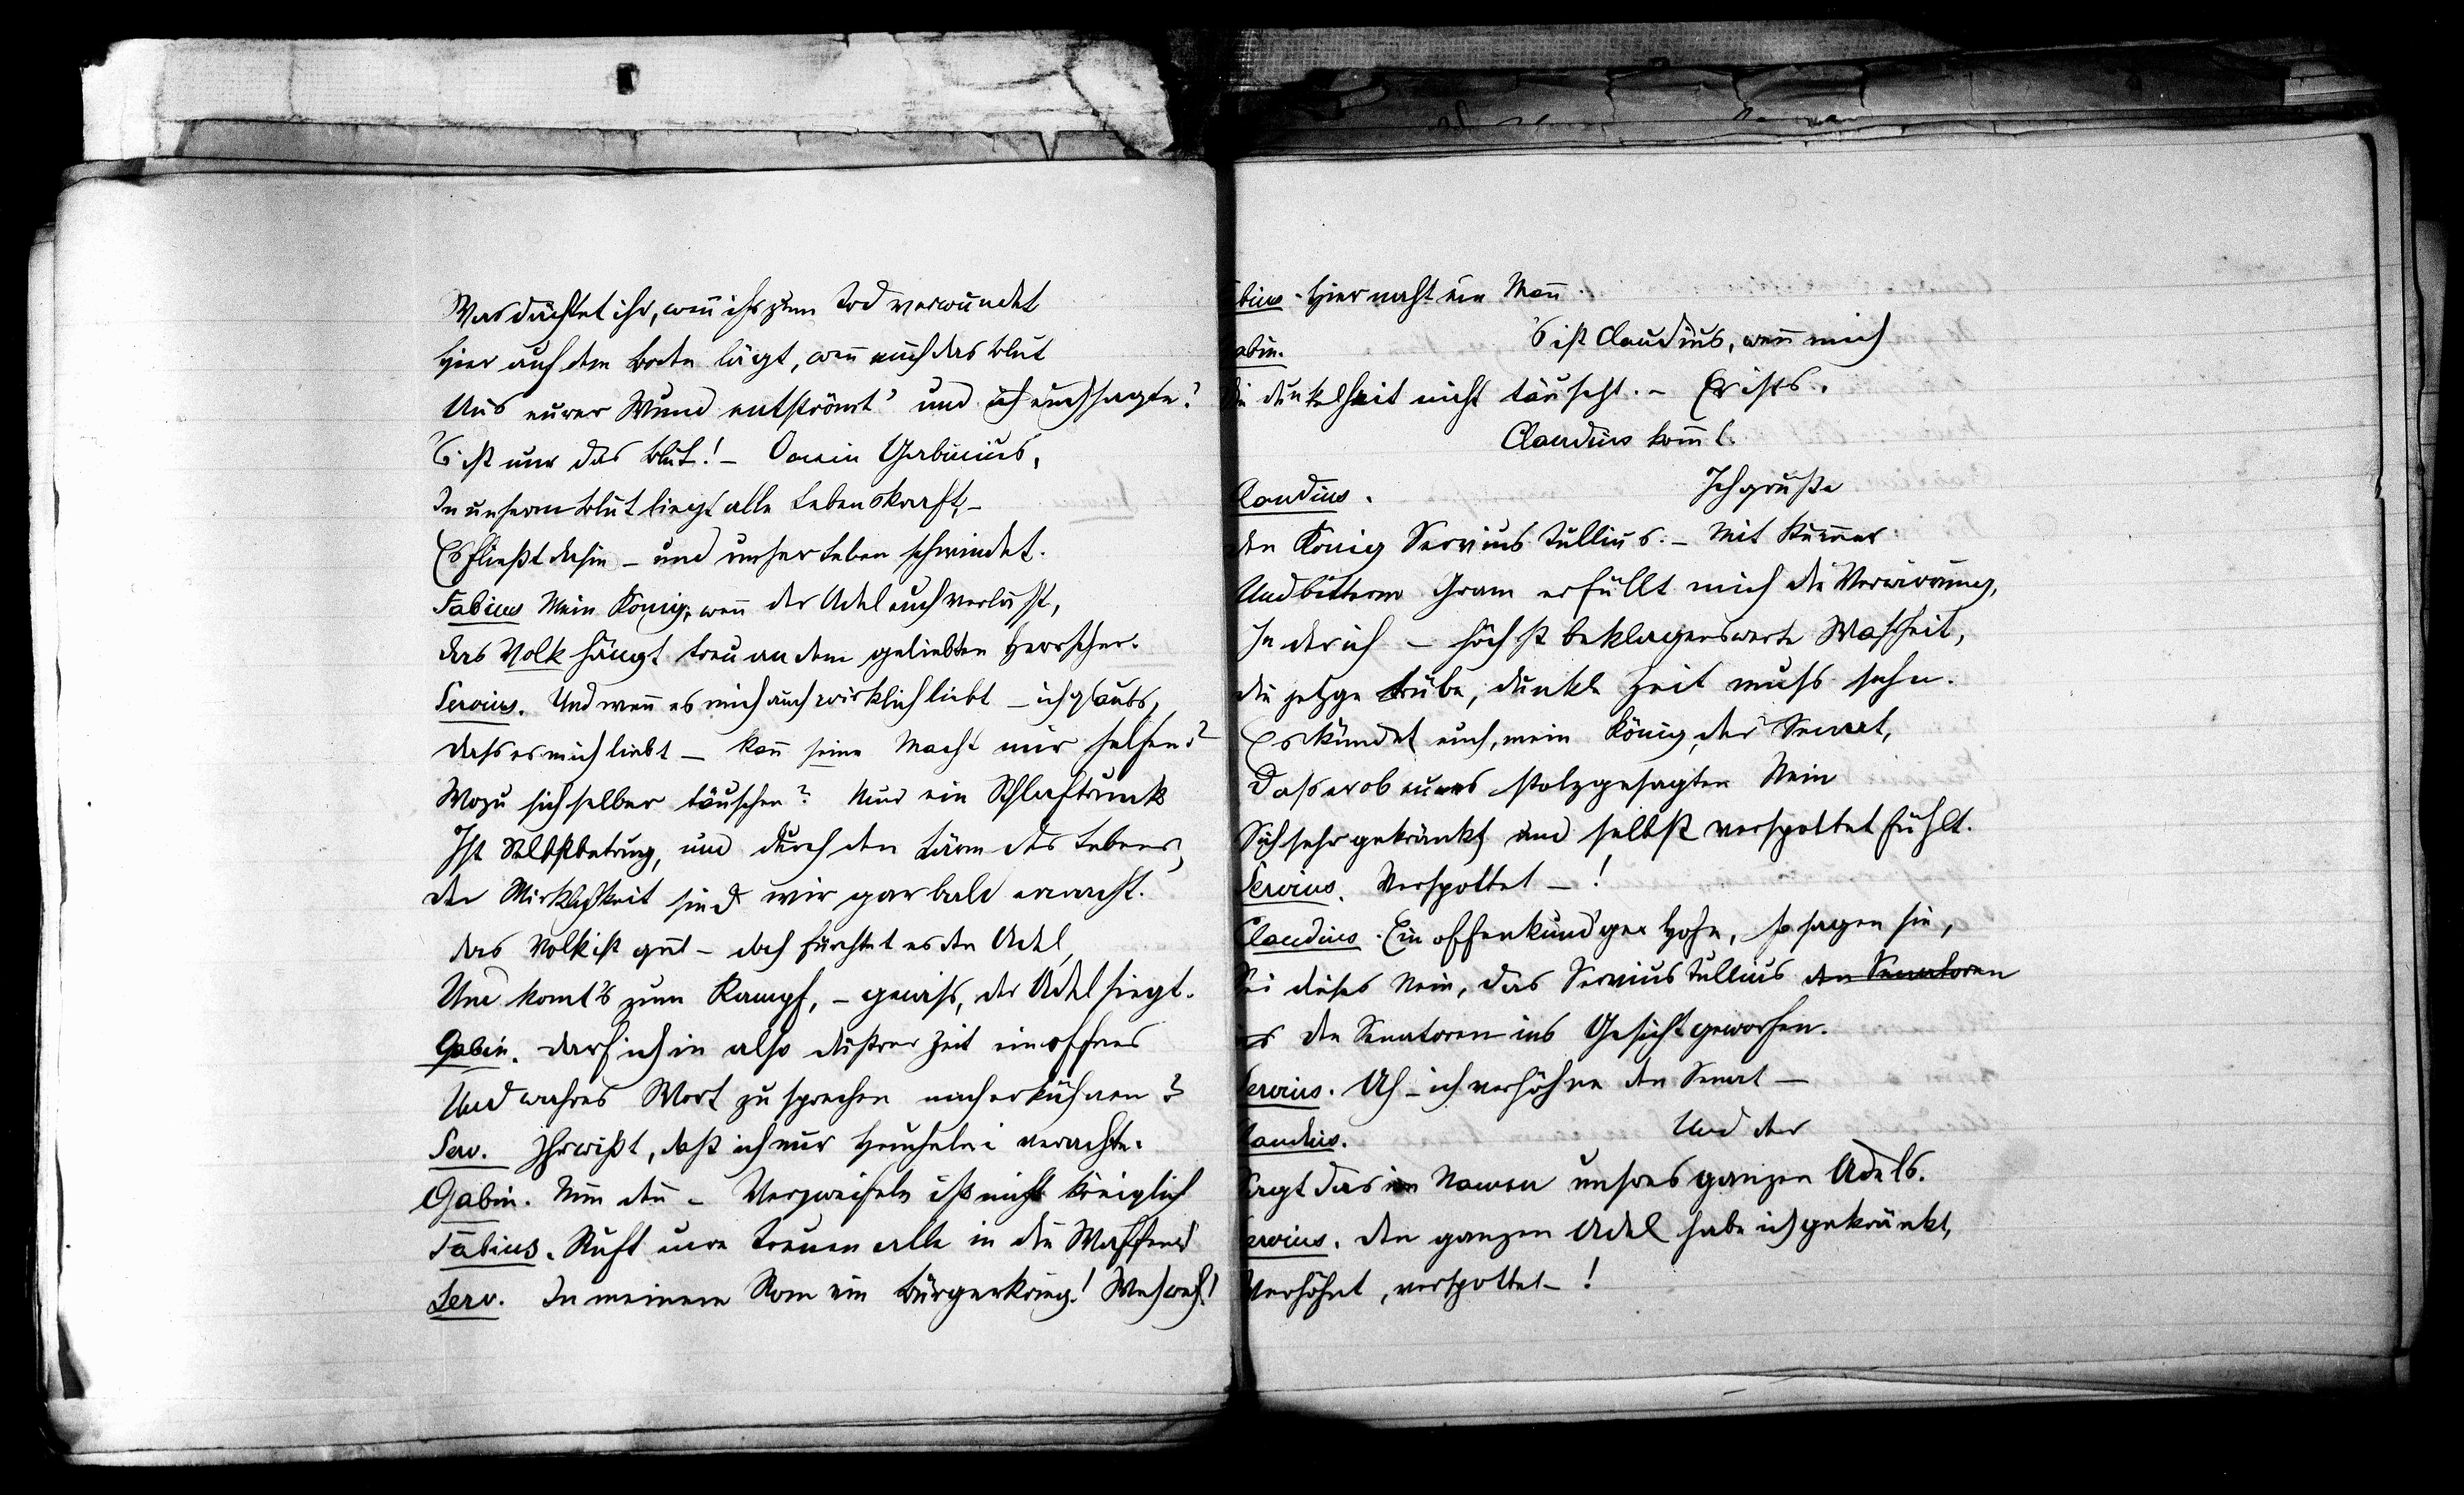 Was dächtet ihr, wen̄ ihr zum Tod verwundet
Hier auf dem Boden lägt, wen̄ euch das Blut
Aus eurer Wund entströmt' und ich euch sagte:
's ist nur das Blut! – O mein Gabinius,
In unserm Blut liegt alle Lebenskraft, –
Es fließt dahin – und unser Leben schwindet.
Fabius Mein König, wen̄ der Adel euch verläßt,
Das Volk hängt treu an dem geliebten Herrscher.
Servius. Und wen̄ es mich auch wirklich liebt – ich glaubs,
Dass es mich liebt – kan̄ seine Macht mir helfen?
Wozu sich selber täuschen? Nur ein Schlaftrunk
Ist Selbstbetrug, und durch den Lärm des Lebens,
Der Wirklichkeit sind wir gar bald erwacht.
Das Volk ist gut – doch fürchtet es den Adel,
Und kom̄t's zum Kampf, – gewiss, der Adel siegt.
Gabin. Darf ich in also düstrer Zeit ein offnes
Und wahres Wort zu sprechen mich erkühnen?
Serv. Ihr wißt, daß ich nur Heuchelei verachte.
Gabin. Nun den̄ – Verzweifeln ist nicht königlich
Fabius. Ruft eure Treuen alle in die Waffen!
Serv. In meinem Rom ein Bürgerkrieg! Weh weh!
bius. Hier naht ein Man̄.
abin. 's ist Claudius, wen̄ mich
Die Dunkelheit nicht täuscht. – Er ists.
Claudius kom̄t.
Claudius. Ich grüße
Den König Servius Tullius. – Mit Kum̄er
Und bitterm Gram erfüllt mich die Verwirrung,
In der ich – höchst beklagenswerte Wahrheit,
Die jetzge trübe, dunkle Zeit muss sehn.
Es kündet euch, mein König, der Senat,
Dass er ob eures stolzgesagten Nein
Sich sehr gekränkt und selbst verspottet fühlt.
Servius. Verspottet – !
Claudius. Ein offenkundger Hohn, so sagen sie,
Sei dieses Nein, das Servius Tullius den Senatoren
den Senatoren ins Gesicht geworfen.
Servius. Ah – ich verhöhne den Senat –
Claudius. Und der
Sagt das im Namen unsres ganzen Adels.
Servius. Den ganzen Adel habe ich gekränkt,
Verhöhnt, verspottet – !